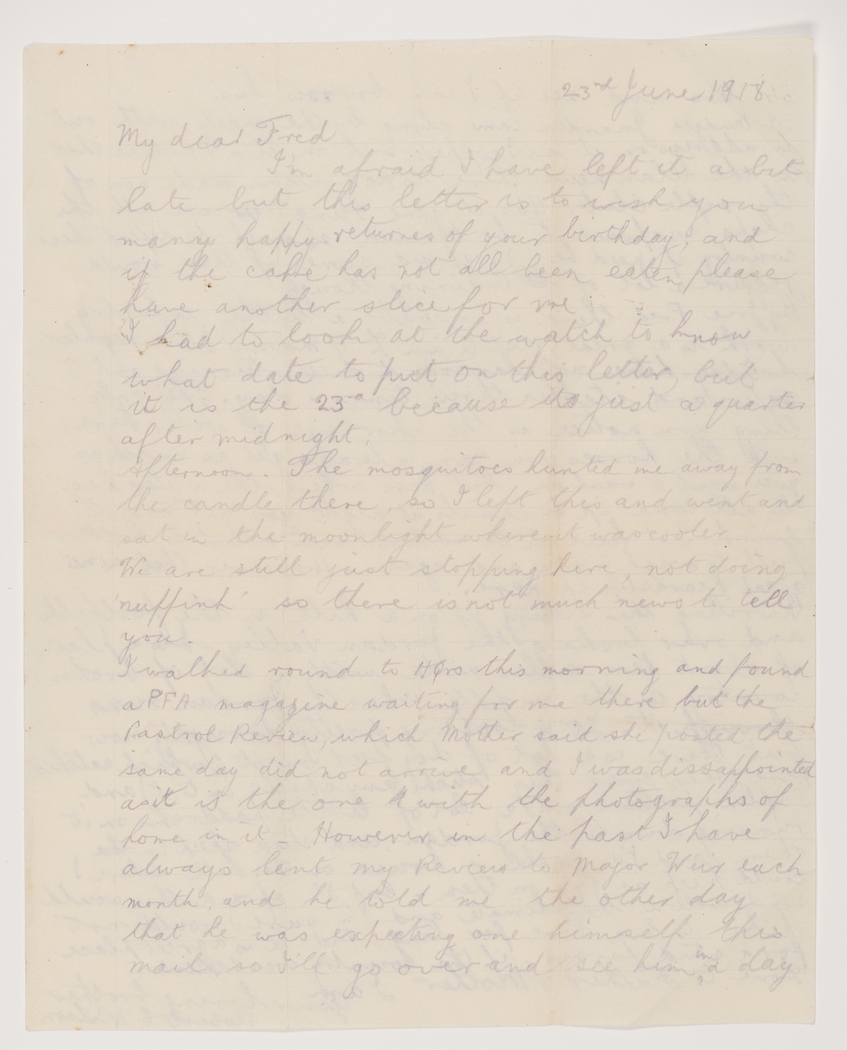 23rd June 1918
My dear Fred
I'm afraid I have left it a bit
late but this letter is to wish you
many happy returnes of your birthday; and
if the cake has not all been eaten, please
have another slice for me
I had to look at the watch to know
what date to put on this letter, but
it is the 23rd because its just a quarter
after midnight.
Afternoon. The mosquitoes hunted me away from
the candle there, so I left this and went and
sat in the moonlight where it was cooler
We are still just stopping here, not doing
'nuffink' so there is not much news to tell
you.
I walked round to HQrs this morning and found
a PFA magazine waiting for me there but the
Pastrol Review, which Mother said she posted the
same day did not arrive and I was dissappointed
as it is the one with the photographs of
home in it - However in the past I have
always lent my Review to Major Weir each
month, and he told me the other day
that he was expecting one himself this
mail so I'll go over and see him in a day